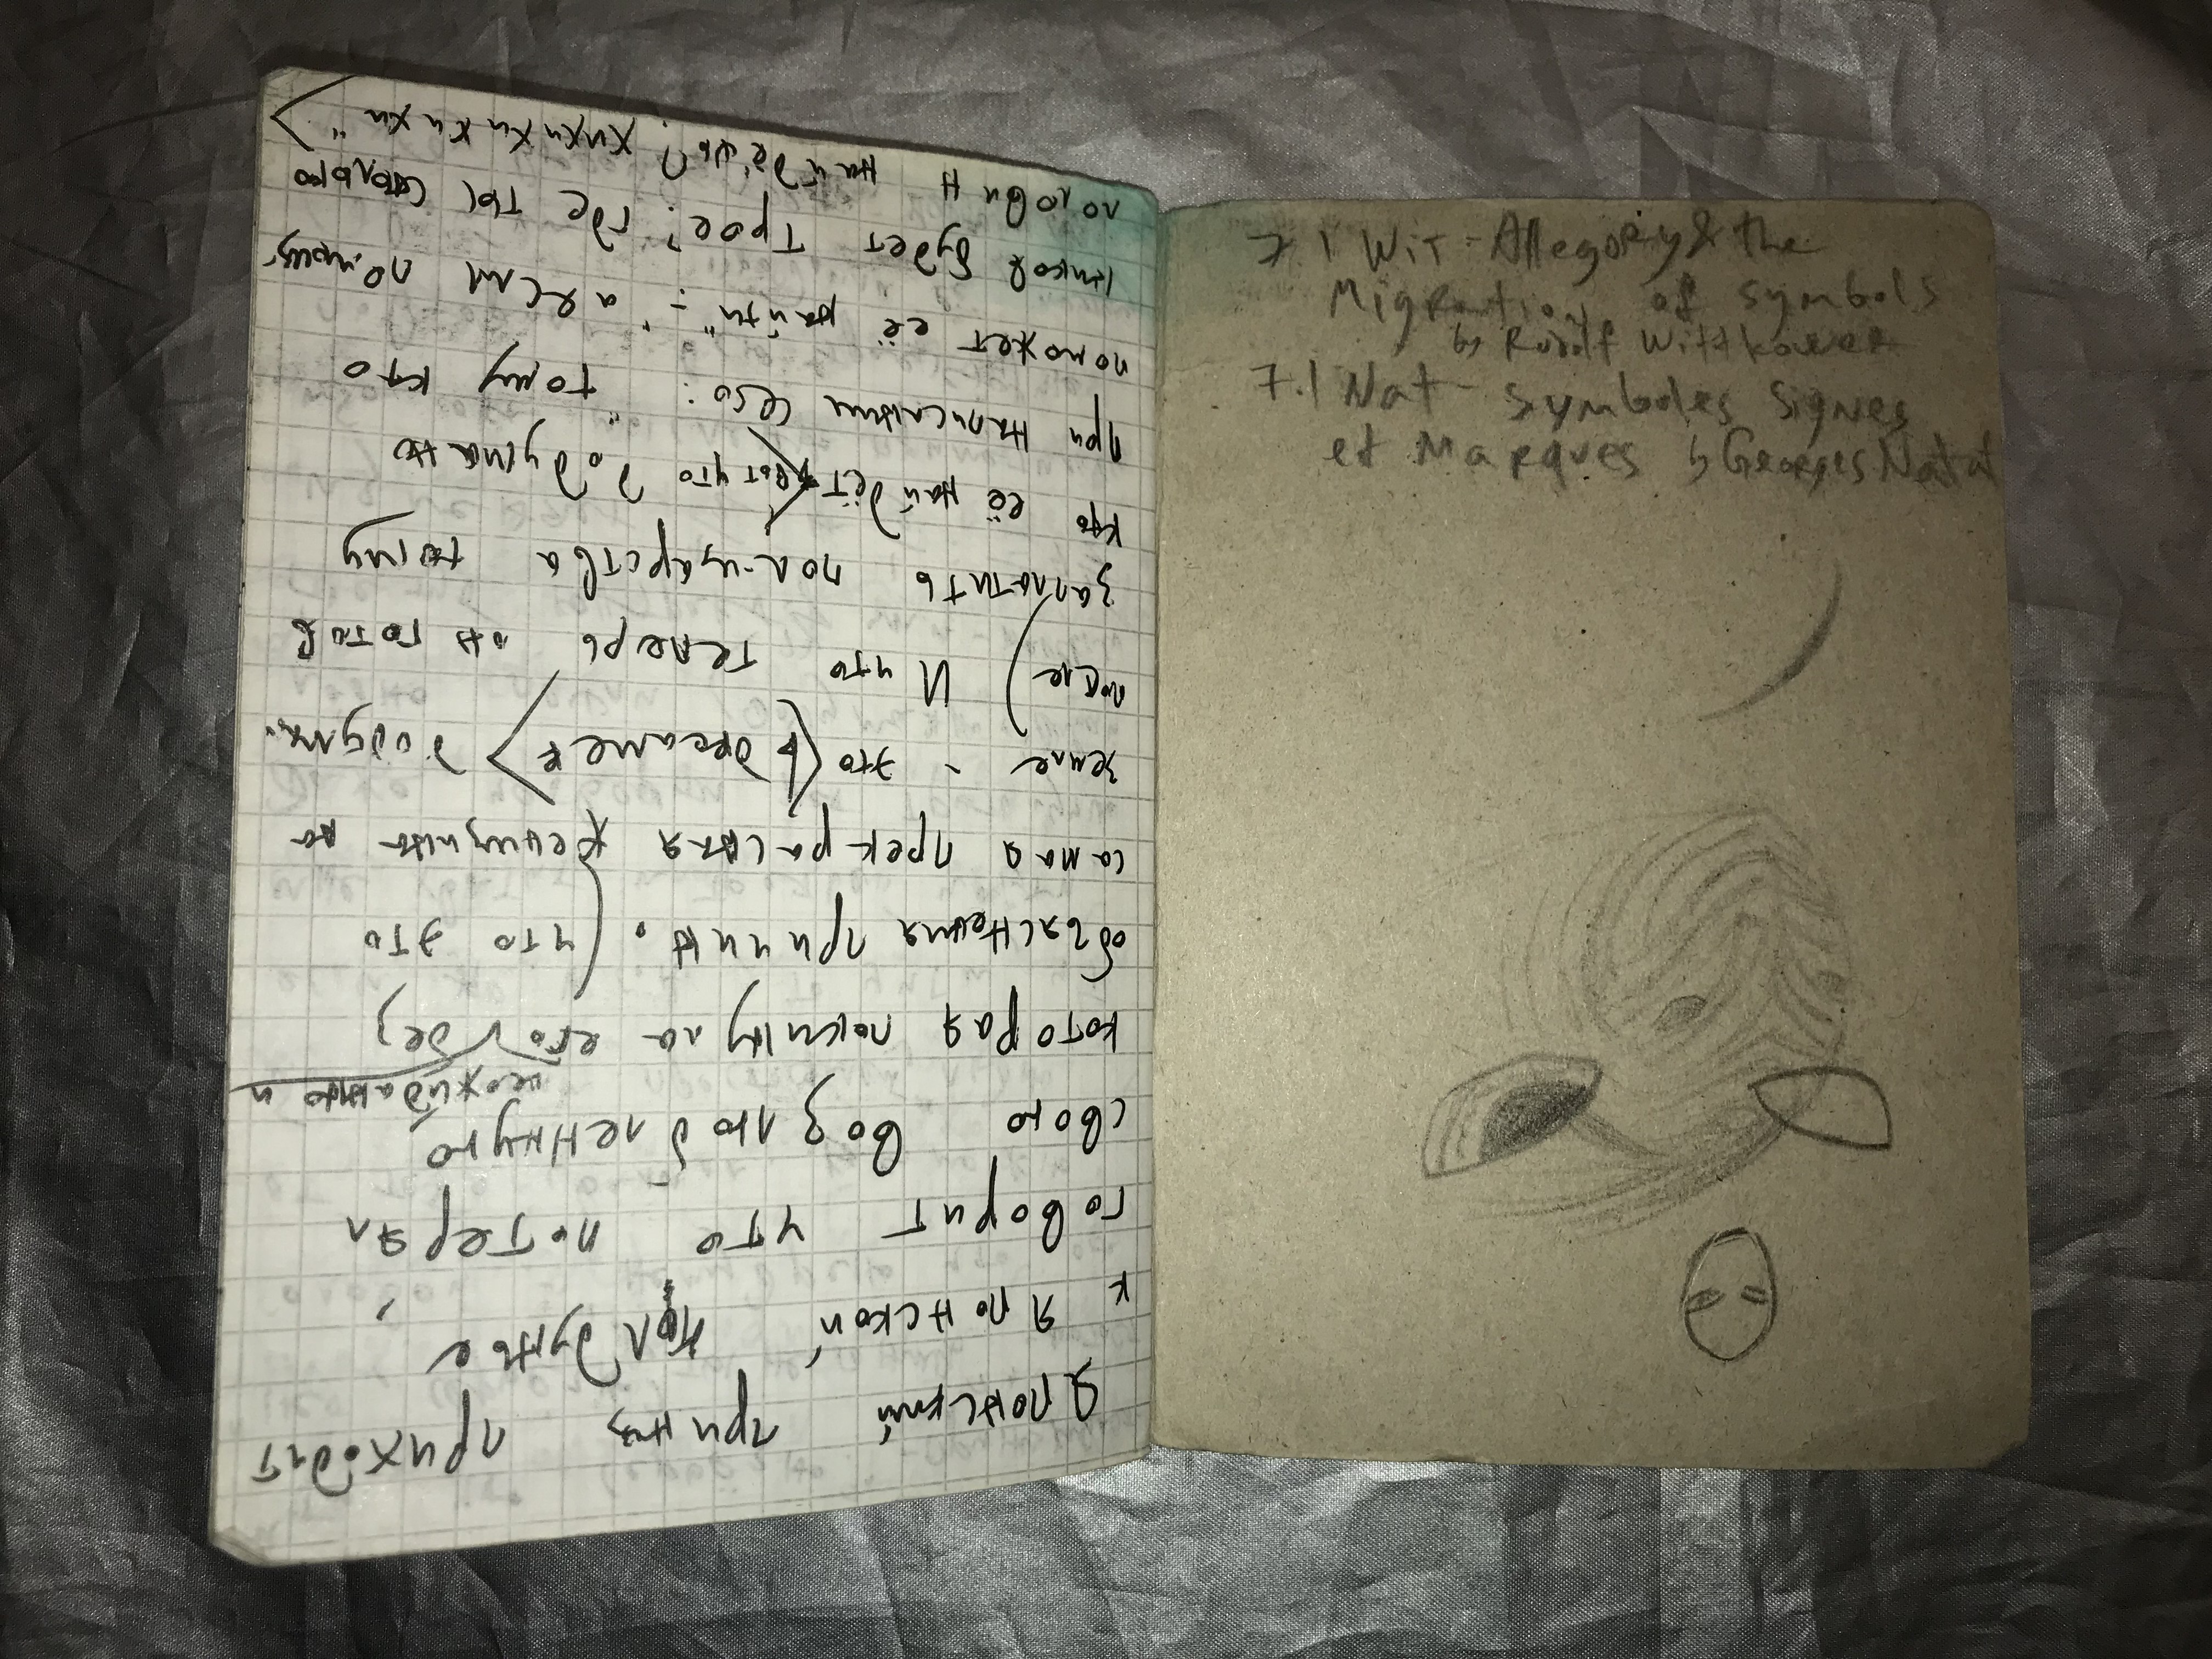 7.1 Wit - Allegory & the
Migration of symbols
by Rudolf Wittkower
7.1 Nat - Symboles Signes
et Marques by Georges Nataf
Японский принц приходит
к японской колдунье,
говорит что потерял
свою возлюбленную,
неожиданно и
которая покинула его без
объяснения причин. (что это
самая прекрасная женщина на
земле - это додума-
после) И что теперь он готов
заплатить пол-царства тому
кто её найдёт <вот что додумано
при написании сего: "тому кто
поможет её найти" - "а если помощ-
ников будет трое? где ты столько
половин найдёшь? хихихихихи">